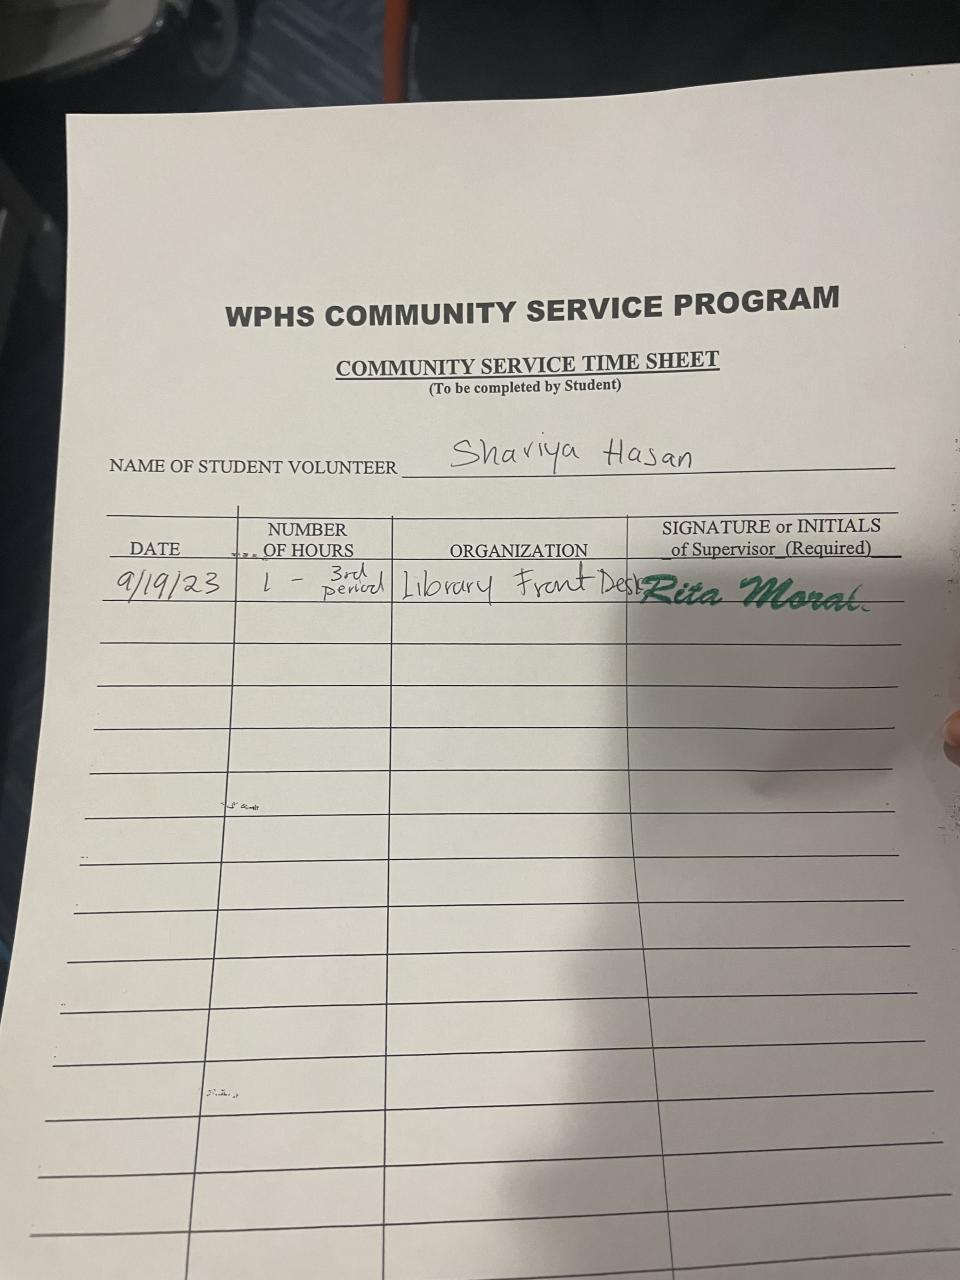 WPHS COMMUNITY SERVICE PROGRAM
COMMUNITY SERVICE TIME SHEET
(To be completed by Student)
NAME OF STUDENT VOLUNTEER Shariya Hasan
DATE
NUMBER
OF HOURS
ORGANIZATION
SIGNATURE or INITIALS
of Supervisor (Required)
9/19/23 1 - 3rd period Library Front Desk Rita